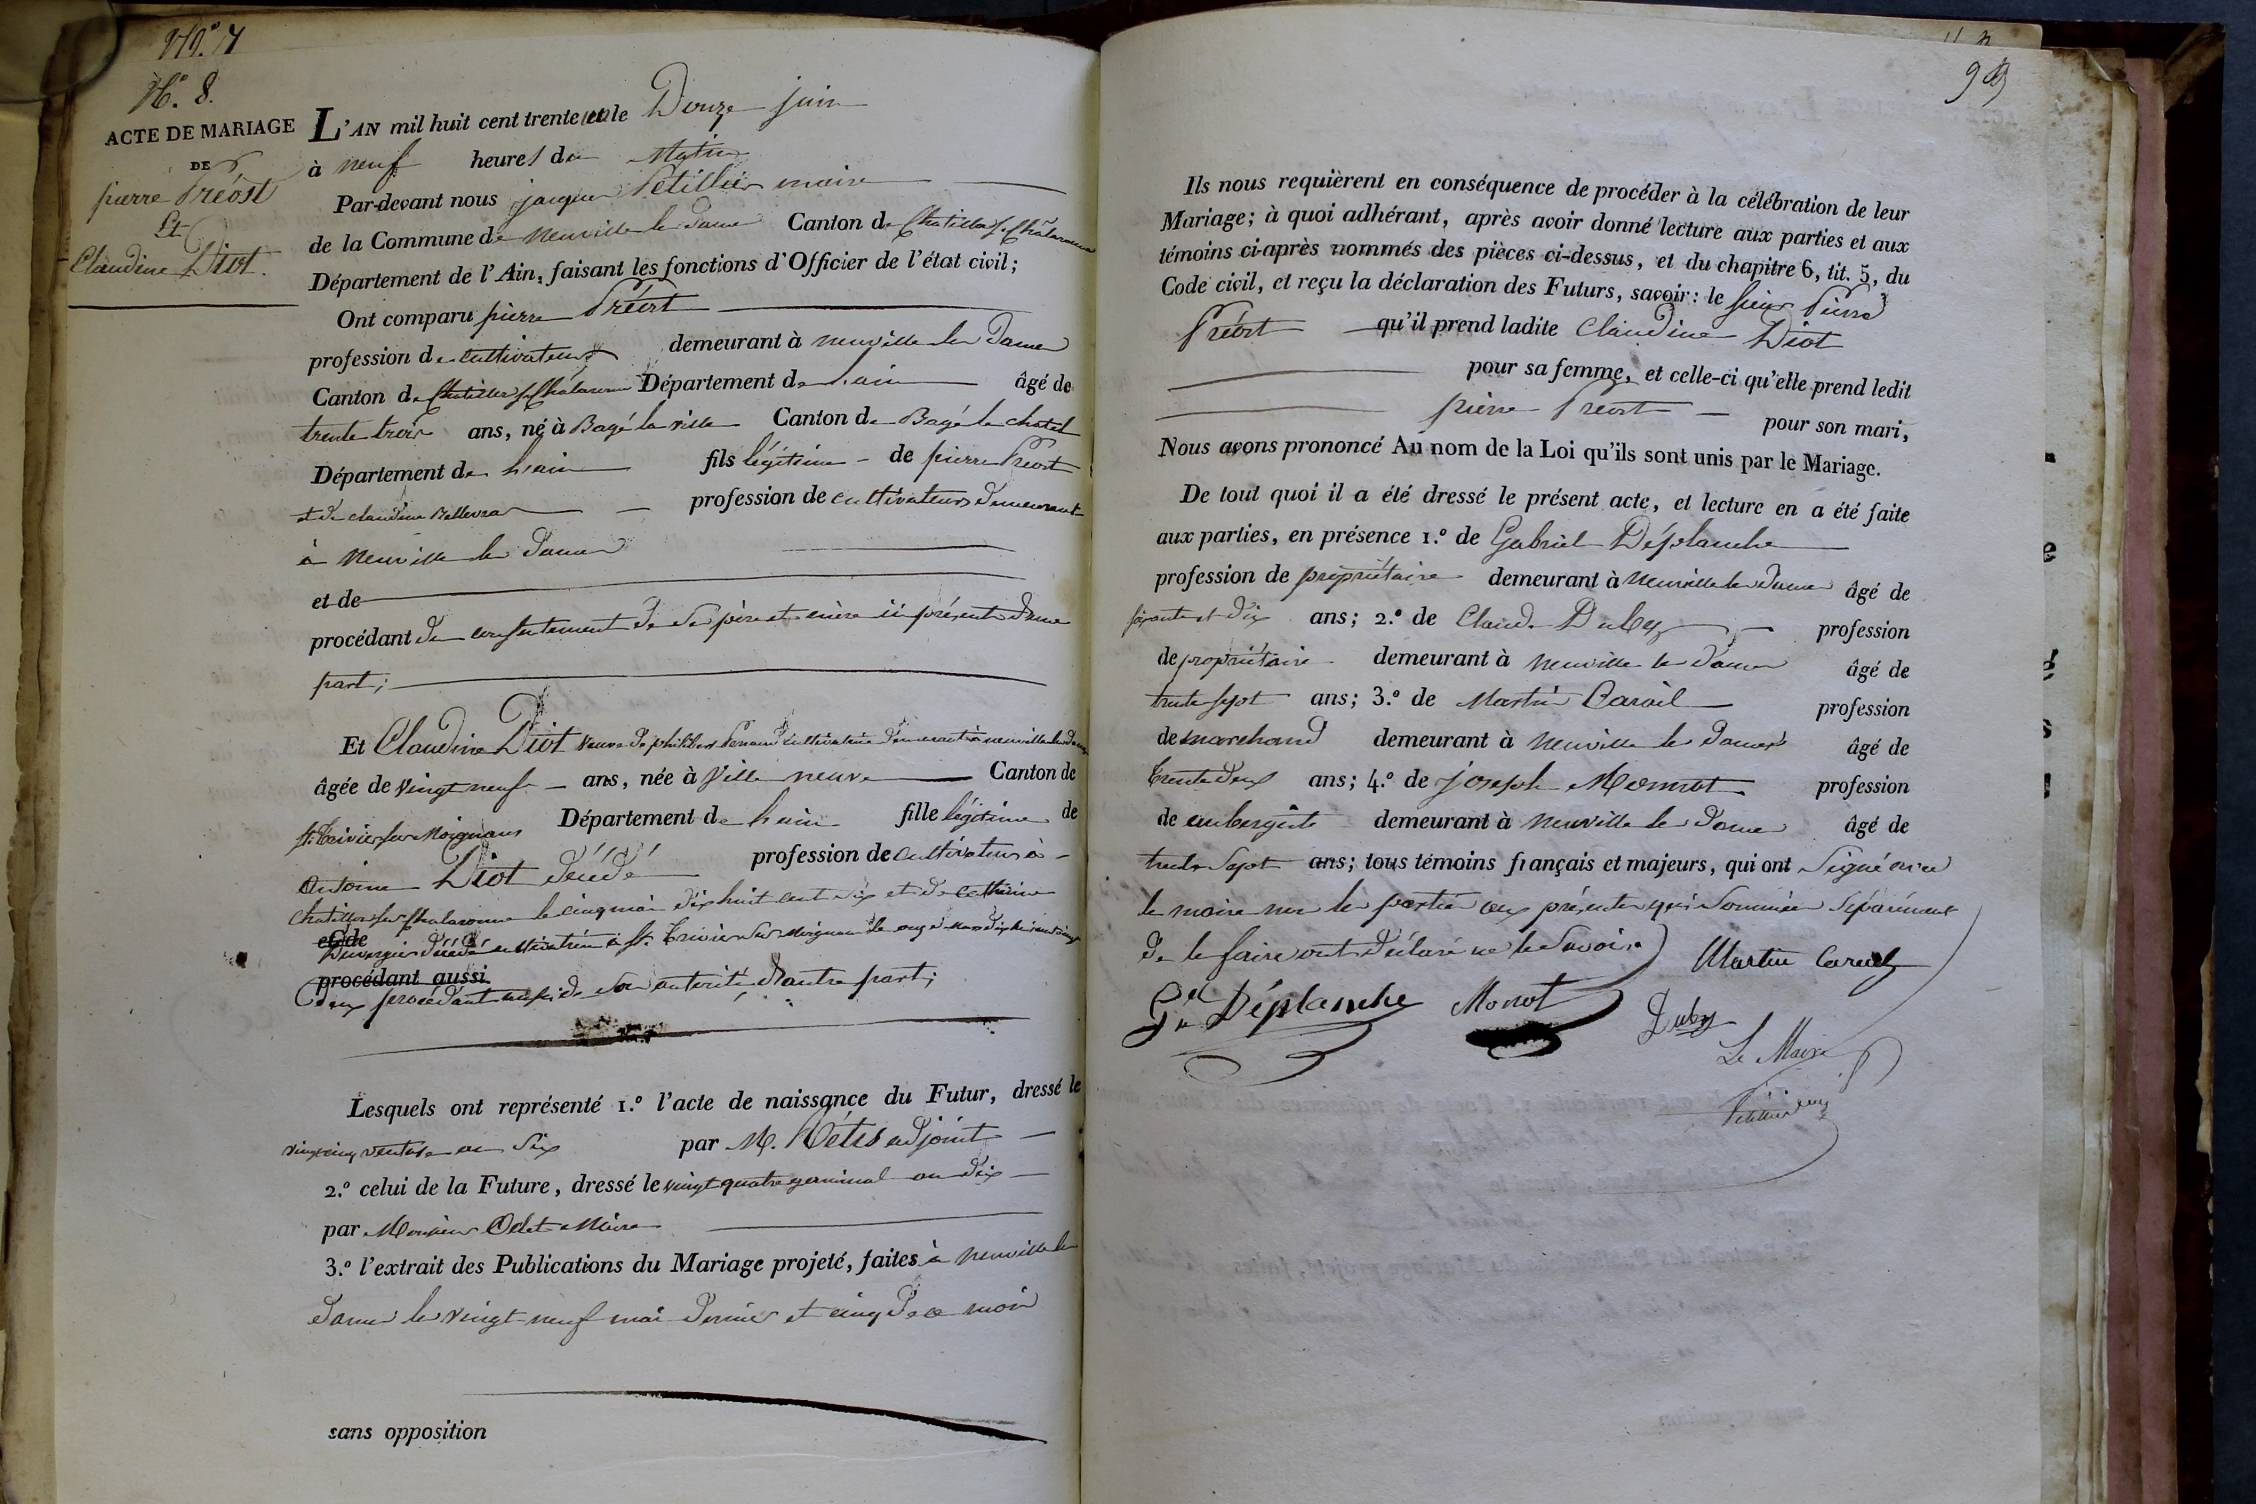 N.° 7
N.° 8.
ACTE DE MARIAGE
DE
pierre Préost
Et
Claudine Diot.
L'AN mil huit cent trente un le Douze juin
à neuf heures du Matin
Par-devant nous jacques Petillier maire
de la Commune de neuville les dames Canton de Chatillon s. Chalaronne
Département de l'Ain, faisant les fonctions d'Officier de l'état civil;
Ont comparu pierre Préost
profession de cultivateur demeurant à neuville les dames
Canton de Chatillon s. Chalaronne Département de l'ain âgé de
trente trois ans, né à Bagé la ville Canton de Bagé le chatel
Département de l'ain fils légitime de pierre Preost
et de claudine Bellevrat profession de cultivateurs demeurant
à neuville les dames
et de
procédant du consentement de ses père et mère ici présents d'une
part;
Et Claudine Diot veuve de philibert cultivatrice demeurant à neuville les dames
âgée de vingt neuf ans, née à Ville neuve Canton de
st. trivier sur moignans Département de l'ain fille légitime de
antoine Diot décédé profession de cultivateur à
chatillon sur chalaronne le cinq mai dix huit cent six et de catherine
et de
Duvergier décédée cultivatrice à st. trivier sur moignans le onze mars dix huit cent
procédant aussi
procédant aussi de son autorité d'autre part;
Lesquels ont représenté 1.° l'acte de naissance du Futur, dressé le
vingt cinq ventose an six par M. adjoint
2.° celui de la Future, dressé le vingt quatre germinal an dix
par Monsieur Odet Maire
3.° l'extrait des Publications du Mariage projeté, faites à neuville les
dames les vingt neuf mai dernier et cinq de ce mois
sans opposition
Ils nous requièrent en conséquence de procéder à la célébration de leur
Mariage; à quoi adhérant, après avoir donné lecture aux parties et aux
témoins ci-après nommés des pièces ci-dessus, et du chapitre 6, tit. 5, du
Code civil, et reçu la déclaration des Futurs, savoir: le sieur Pierre
Préost qu'il prend ladite Claudine Diot
pour sa femme, et celle-ci qu'elle prend ledit
pierre Preost pour son mari,
Nous avons prononcé Au nom de la Loi qu'ils sont unis par le Mariage.
De tout quoi il a été dressé le présent acte, et lecture en a été faite
aux parties, en présence 1.° de Gabriel Déplanche
profession de propriétaire demeurant à neuville les dames âgé de
soixante et dix ans; 2.° de Claude Duby profession
de propriétaire demeurant à neuville les dames âgé de
trente sept ans; 3.° de Martin Careil profession
de marchand demeurant à neuville les dames âgé de
trente deux ans; 4.° de joseph Monnot profession
de aubergiste demeurant à neuville les dames âgé de
trente sept ans; tous témoins français et majeurs, qui ont signé avec
le maire non les parties ici présentes qui sommées séparément
de le faire ont déclaré ne le savoir
Martin Careil
Gel Déplanche Monot
Duby
Le Maire
Petillier